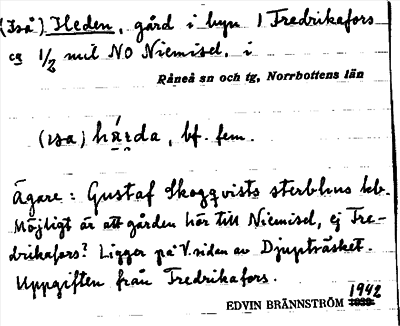 (Iså) Heden, gård i byn 1 Fredrikafors
ca 1/2 mil NO Niemisel, i
Råneå sn och tg, Norrbottens län
(isa) hä́ɛda, bf. fem.
Ägare: Gustaf Skogqvists sterbhus
Möjligt är att gården hör till Niemisel, ej Fre-
drikafors? Ligger på V. sidan av Djupträsket.
Uppgiften från Fredrikafors.
EDVIN BRÄNNSTRÖM 1942